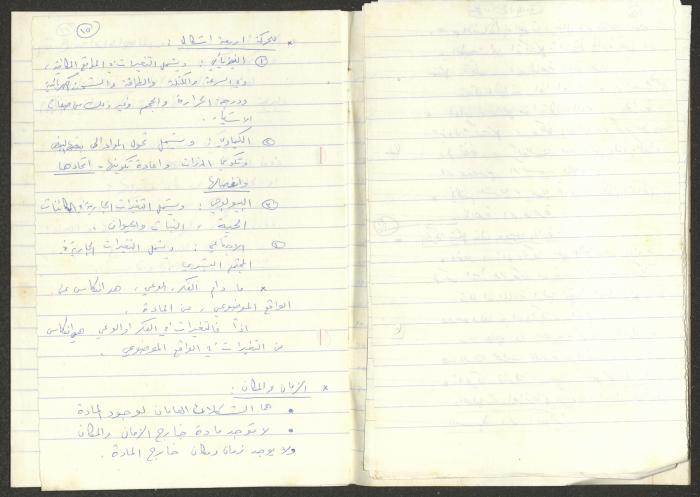 ٧٥
* للحركة اربعة اشكال :
① الفيزيائي : وتشمل التغيرات في المواقع المكانية ،
وفي السرعة والكتلة والطاقة والشحن الكهربائية
ودرجة الحرارة والحجم وغير ذلك من صفات
الاشياء .
② الكيماوي : وتشمل تحول المواد الى بعضها البعض
وتكوين الذرات واعادة تكوينها - اتحادها
وانفصالها
③ البيولوجي : وتشمل التغيرات الجارية في الكائنات
الحية ، النبات والحيوان .
④ الاجتماعي : وتشمل التغيرات الجارية في
المجتمع البشري
* ما دام الفكر ، الوعي ، هو انعكاس عن
الواقع الموضوعي ، من المادة .
اذاً فالتغيرات في الفكر او الوعي هي انعكاس
من التغيرات في الواقع الموضوعي .
* الزمان والمكان :
• هما الشكلان العامان لوجود المادة
• لا توجد مادة خارج الزمان والمكان
ولا يوجد زمان ومكان خارج المادة .